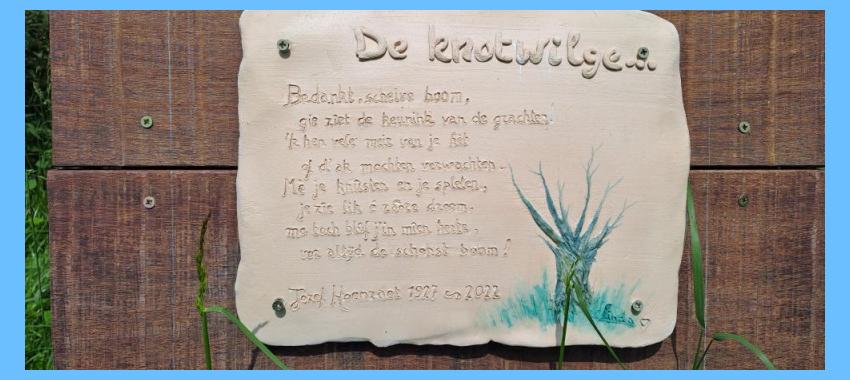 De knotwilgen
Bedankt, scheive boom,
gie ziet de keunink van de grachten.
'k hen vele meis van je
of d' ak mochten verwachten.
Me je knüsten en je spleten,
je zie lik e droom.
mo toch bluf j'in mien herte,
voe altijd de schonst boom!
Jozef 1927 en 2022